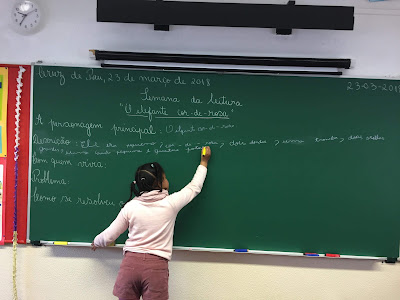 Cruz de Pau, 23 de março de 2018
23-03-2018
Semana da leitura
"O elefante cor-de-rosa"
A personagem principal: O elefante cor-de-rosa
Descrição: Ele era pequeno, cor-de-rosa, dois dentes, tromba, dois olhos
grandes, uma cauda pequena e quatro
Com quem vivia:
Problema:
Como se resolveu o